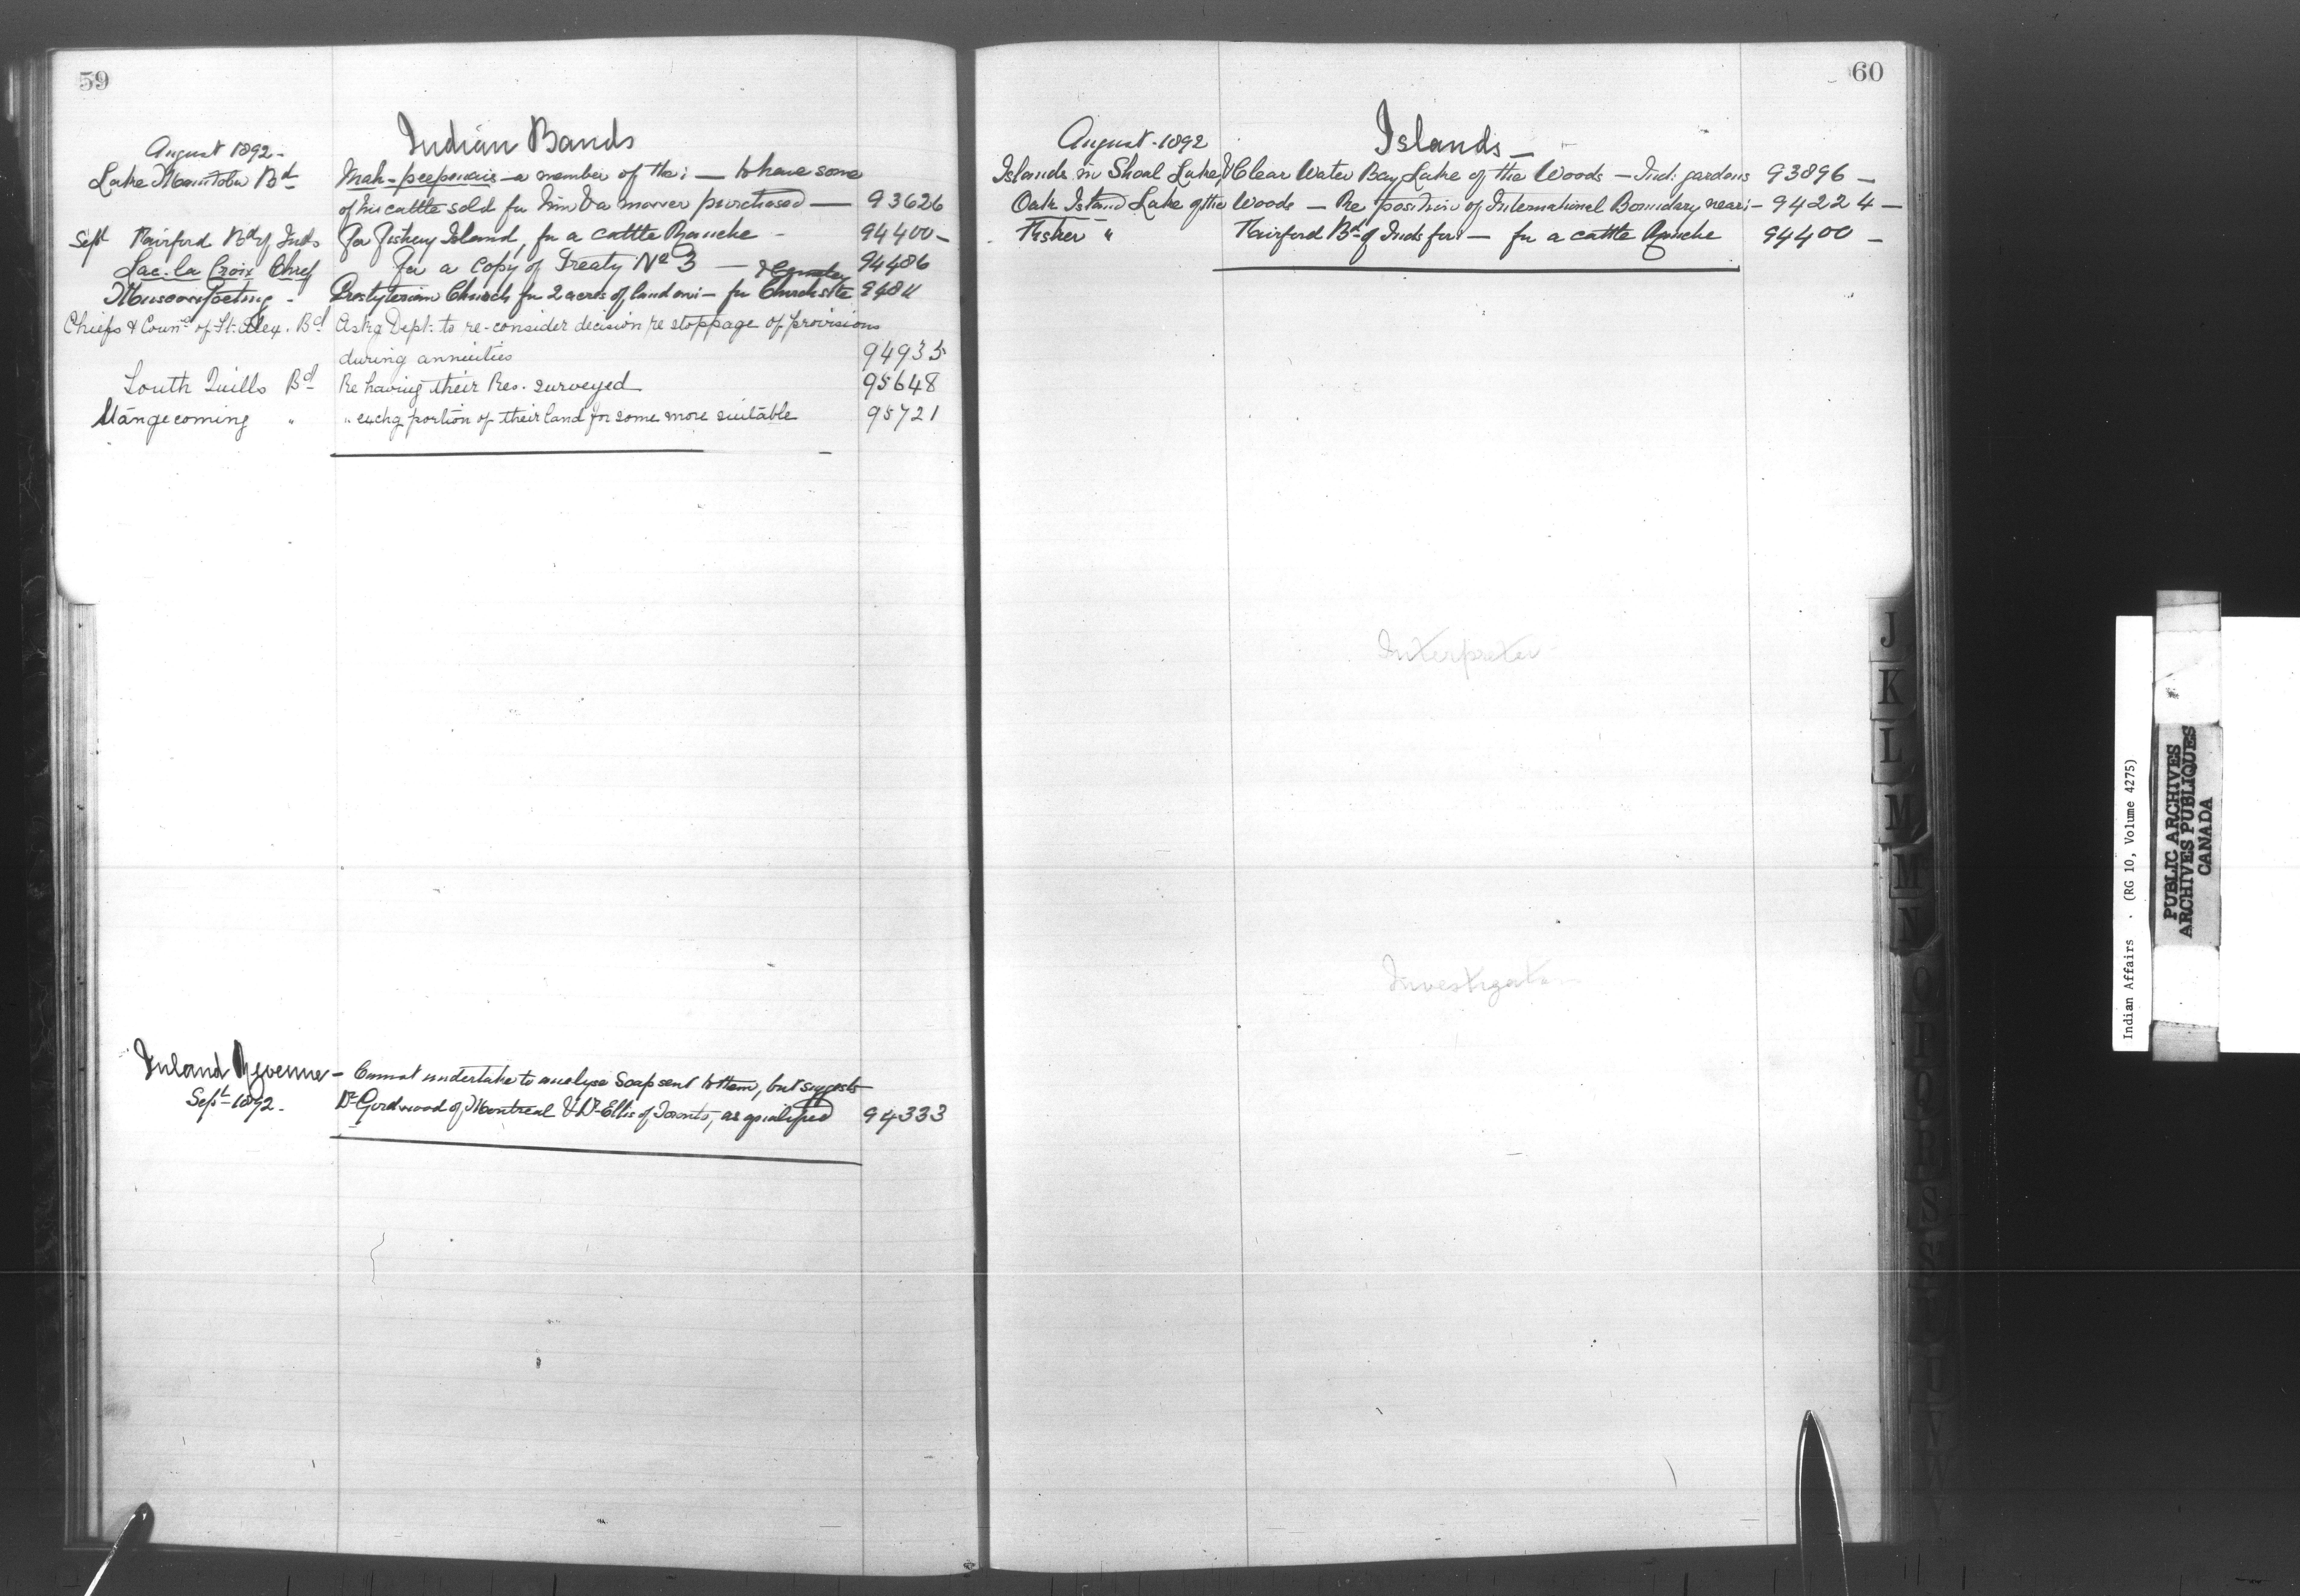 59
Indian Bands
August 1892 -
Lake Manitoba Bd Mah-peepenais - a member of the : — to have some
of his cattle sold for him & a mower purchased — 93626
Sept Fairford Bd of Inds For Fishery Island, for a cattle Ranche - 94400 -
Lac. la Croix Chief for a copy of Treaty No 3 — 94486
Muscowpeting - Presbyterian Church for 2 acres of land on : - for Church site & Cemetery 94811
Chiefs & Councl of St. Alex. Bd Askg Dept. to re-consider decision re stoppage of provisions
during annuities 94935
South Quills Bd Re having their Res. surveyed 95648
Mangecoming " " exchg portion of their land for some more suitable 95721
Inland Revenue - Cannot undertake to analyse Soap sent to them, but suggests
Sept 1892 - Dr Girdwood of Montreal & Dr Ellis of Toronto, as qualified 94333
60
Islands —
August - 1892
Islands in Shoal Lake & Clear Water Bay Lake of the Woods — Ind: gardens 93896 —
Oak Island Lake of the Woods — Re position of International Boundary near : - 94224 —
Fisher " Fairford Bd of Inds for : — for a cattle Ranche 94400 —
Interpreter
Investigation
J
K
L
M
Mc
N
O
P
Q
R
S
S
T
U
V
W
Y
Indian Affairs . (RG 10, Volume 4275)
PUBLIC ARCHIVES
ARCHIVES PUBLIQUES
CANADA